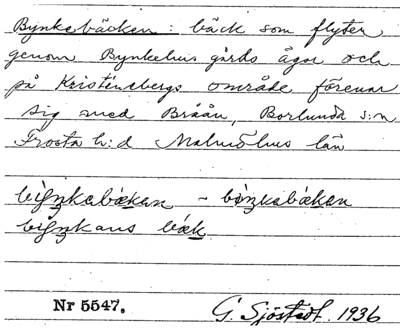 Bynkabäcken: bäck som flyter
genom Bynkehus gårds ägor och
på Kristinebergs område förenar
sig med Bråån, Borlunda s:n
Frosta h:d Malmöhus län
bäk
Nr 5547. G. Sjöstedt. 1936